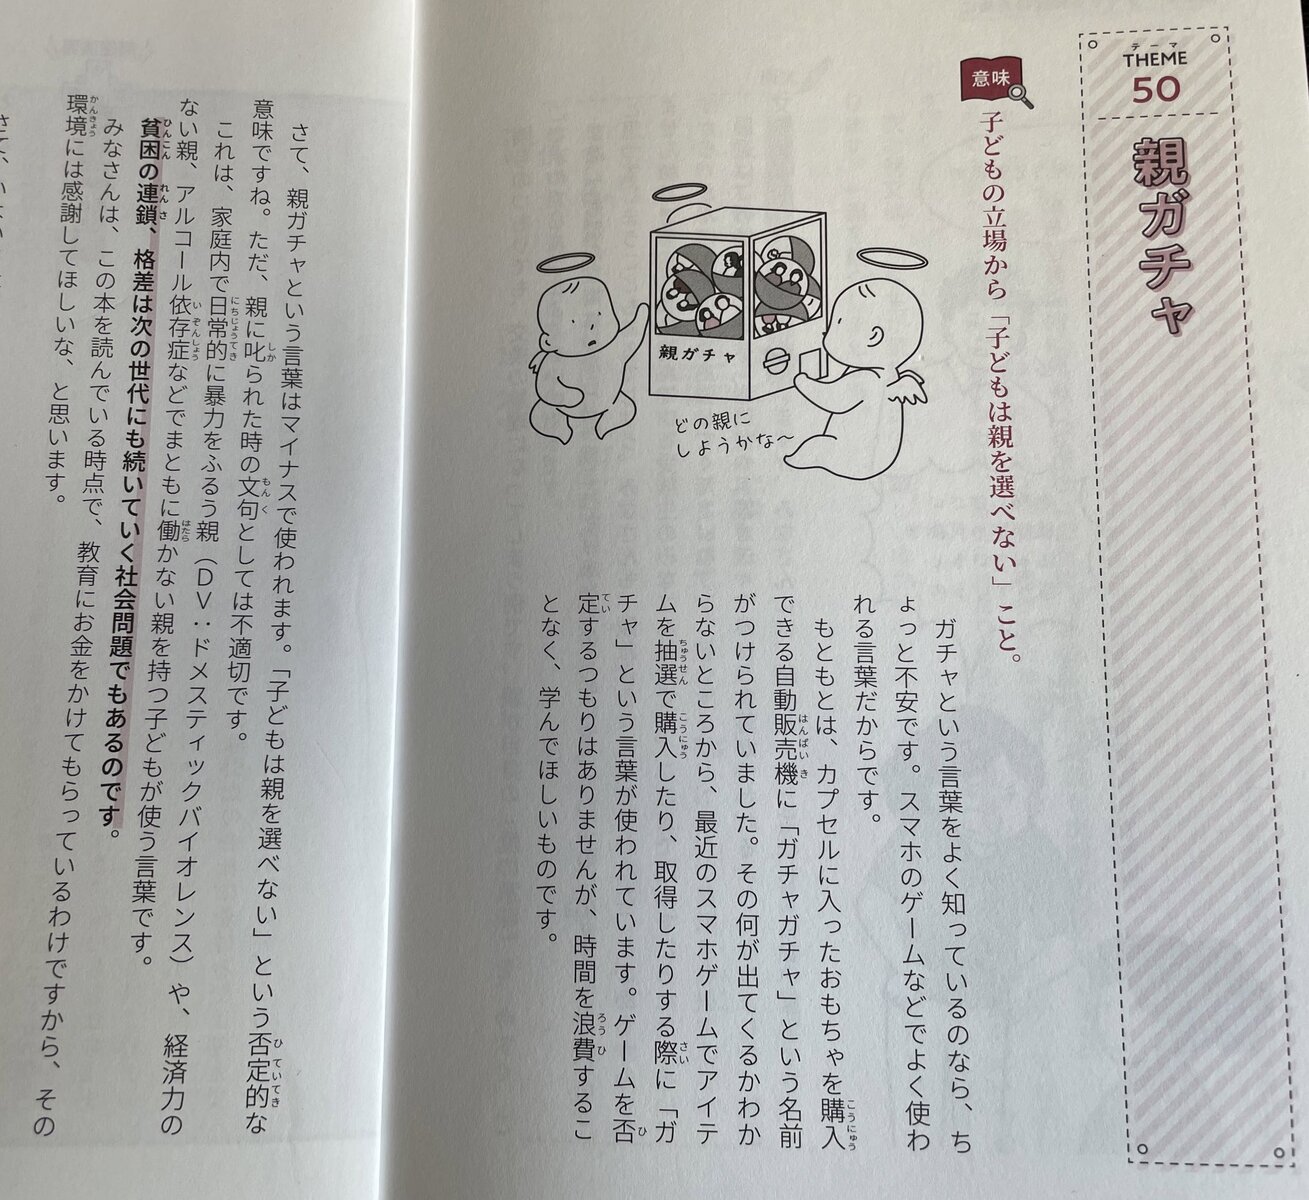 テーマ
THEME
50
親ガチャ
意味
子どもの立場から「子どもは親を選べない」こと。
親ガチャ
どの親に
しようかな〜
ガチャという言葉をよく知っているのなら、ち
ょっと不安です。スマホのゲームなどでよく使わ
れる言葉だからです。
もともとは、カプセルに入ったおもちゃを購入
できる自動販売機に「ガチャガチャ」という名前
がつけられていました。その何が出てくるかわか
らないところから、最近のスマホゲームでアイテ
ムを抽選で購入したり、取得したりする際に「ガ
チャ」という言葉が使われています。ゲームを否
定するつもりはありませんが、時間を浪費するこ
となく、学んでほしいものです。
さて、親ガチャという言葉はマイナスで使われます。「子どもは親を選べない」という否定的な
意味ですね。ただ、親に叱られた時の文句としては不適切です。
これは、家庭内で日常的に暴力をふるう親（ＤＶ：ドメスティックバイオレンス）や、経済力の
ない親、アルコール依存症などでまともに働かない親を持つ子どもが使う言葉です。
貧困の連鎖、格差は次の世代にも続いていく社会問題でもあるのです。
みなさんは、この本を読んでいる時点で、教育にお金をかけてもらっているわけですから、その
環境には感謝してほしいな、と思います。